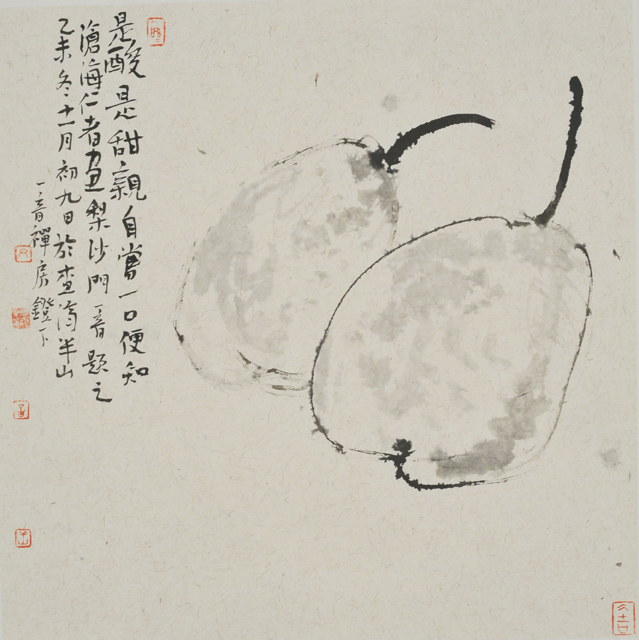 是酸是甜親自嘗一口便知
滄海仁者畫梨沙門一音題之
乙未冬十一月初九日於杳濤半山
一音禪房鐙下